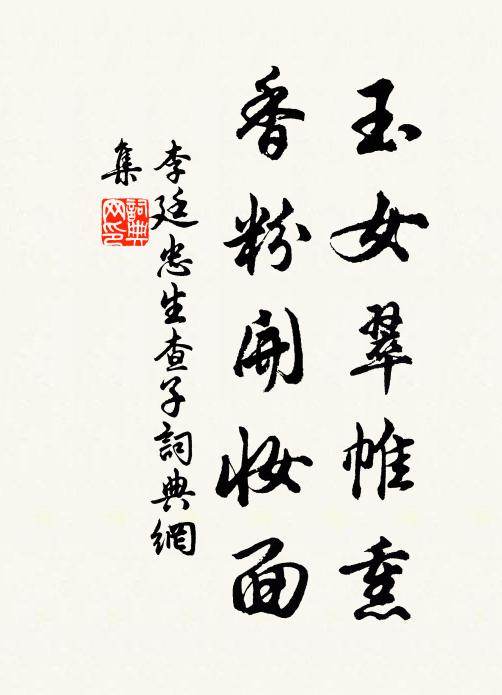 玉女翠帷熏
香粉開妝面
李廷忠生查子詞典網
集
詞典網印